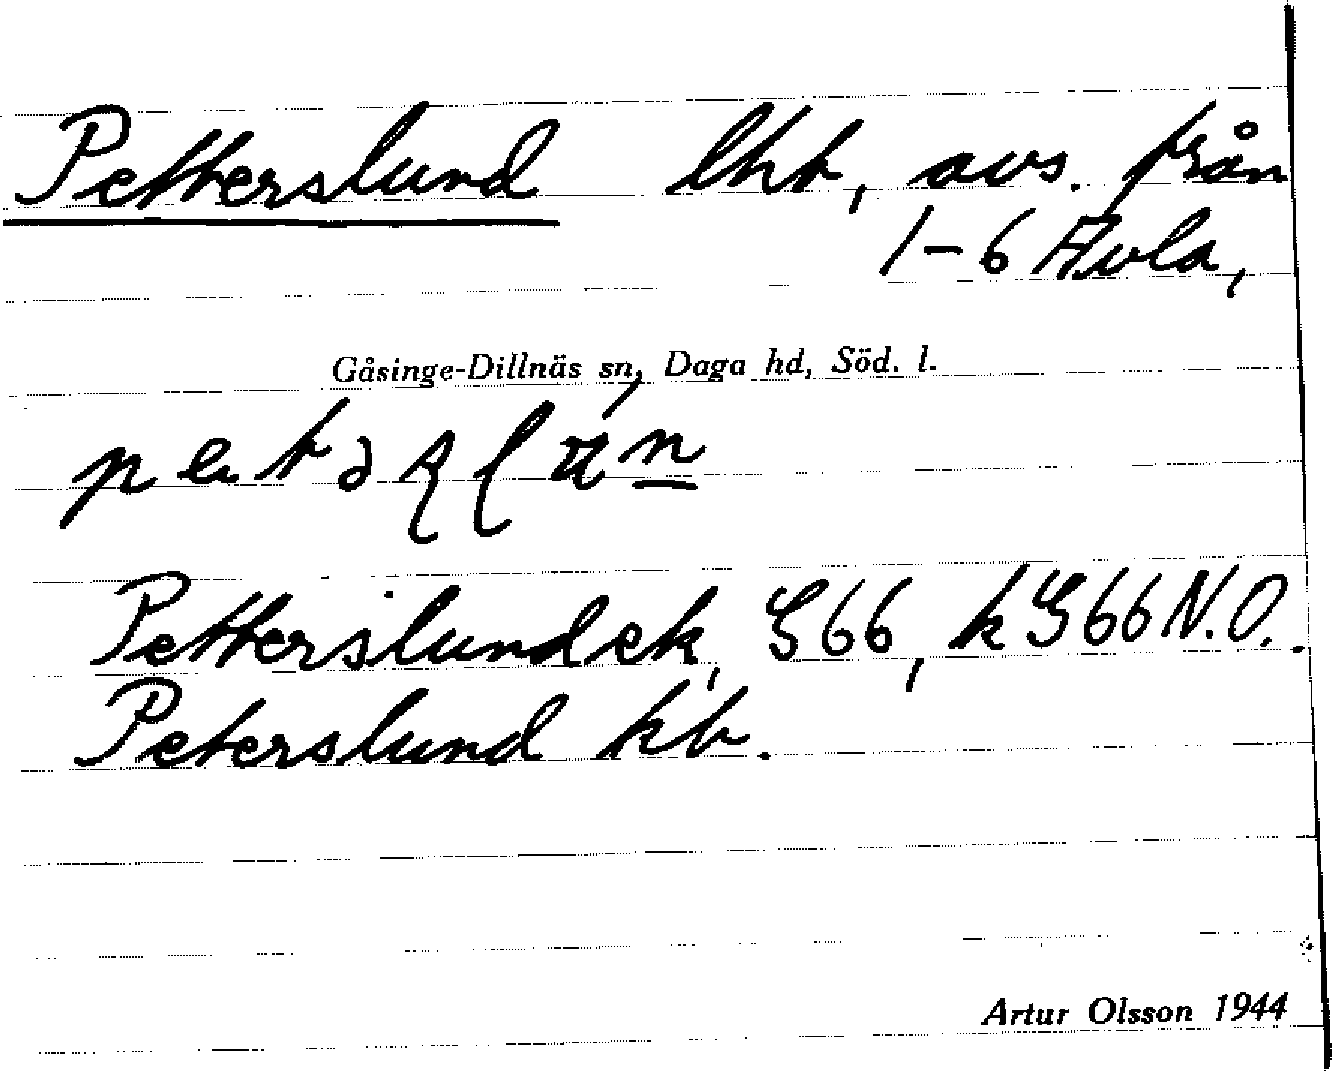 Petterslund lht, avs. från
1-6 Avla,
Gåsinge-Dillnäs sn, Daga hd, Söd. l.
Petterslund ek, G66, k G66 N.O.
Peterslund kb.
Artur Olsson 1944